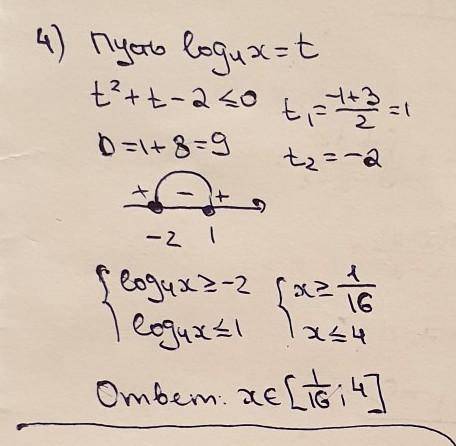 4) Пусть log₄x = t
t² + t - 2 ≤ 0    t₁ = (-1+3)/2 = 1
D = 1 + 8 = 9    t₂ = -2
+ - +
-2 1
{ log₄x ≥ -2    { x ≥ 1/16
{ log₄x ≤ 1    { x ≤ 4
Ответ: x ∈ [1/16; 4]